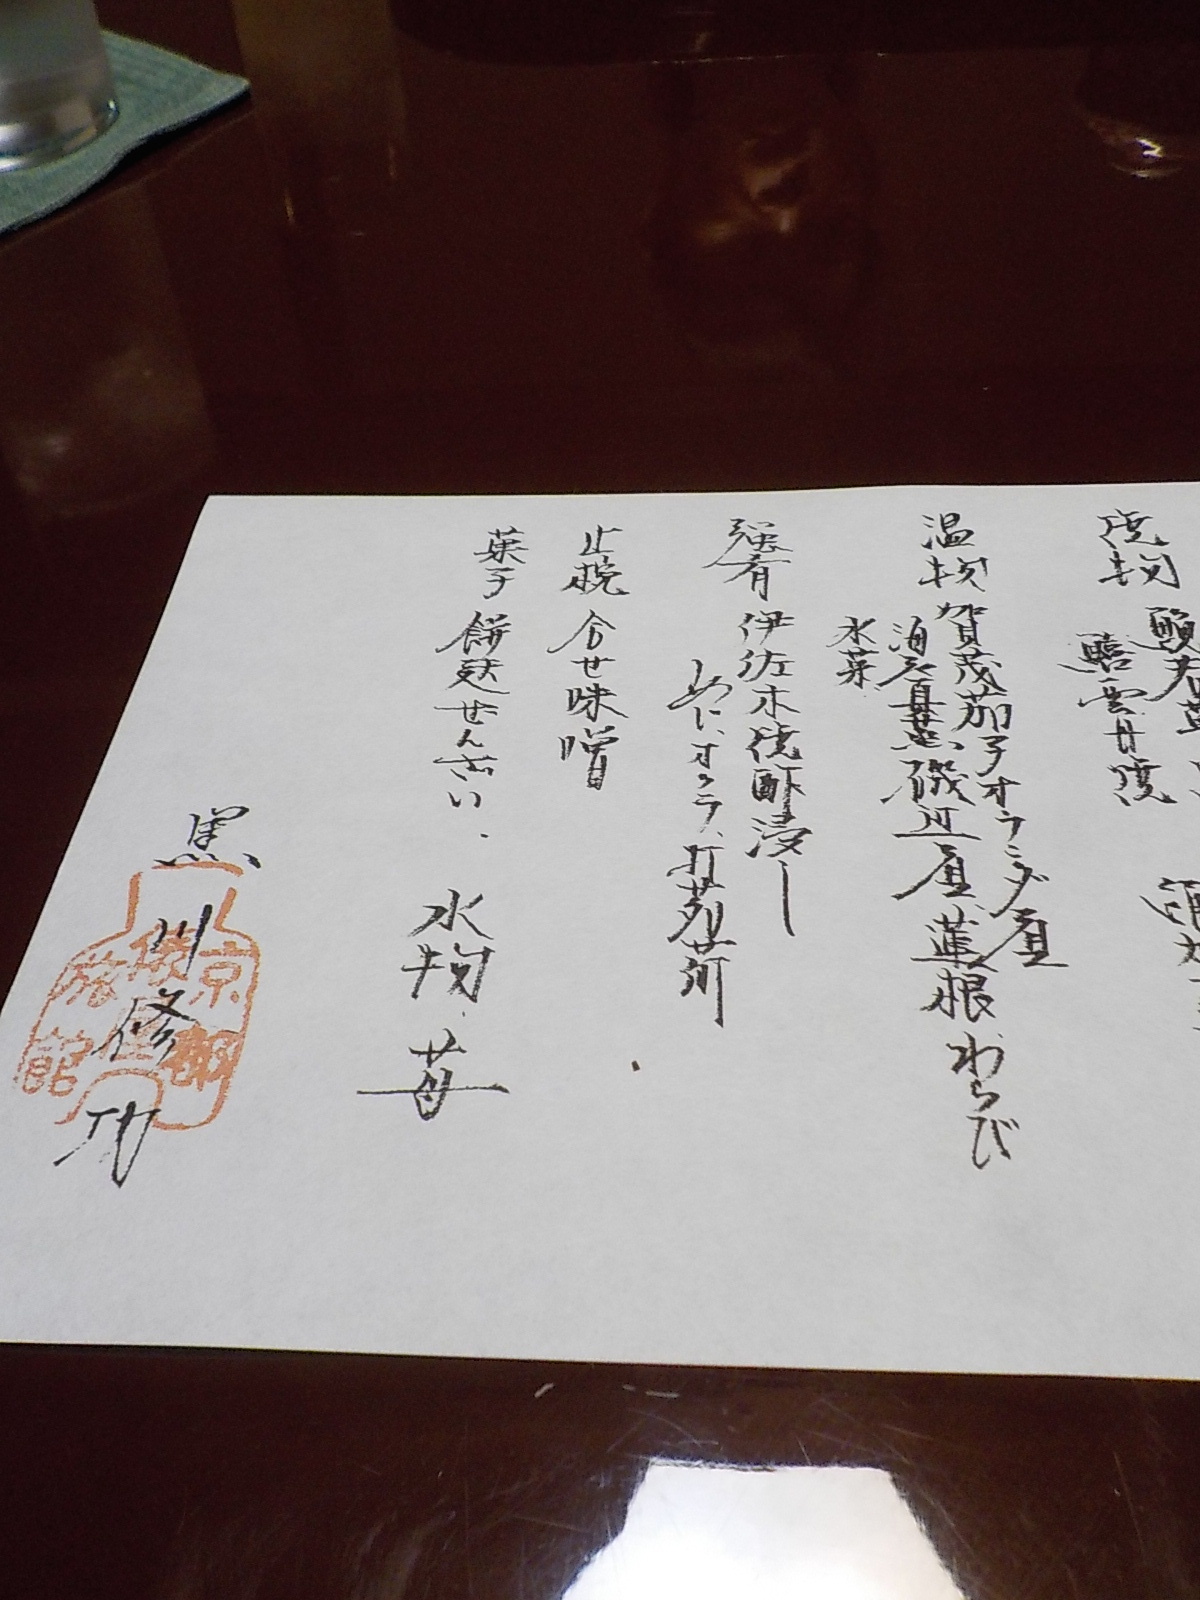 焼物
鱧雲丹焼
温物 賀茂茄子オランダ煮
海老真蒸 磯辺煮 蓮根 わらび
水菜
強肴 伊佐木焼酢浸し
わに、オクラ、打茗荷
止椀 合せ味噌
菓子 餅麩ぜんざい
水物 苺
黒川修功
京都
俵屋
旅館